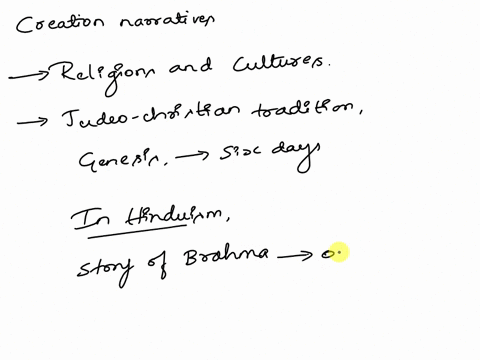 Creation narratives
→ Religions and Cultures.
→ Judeo-christian tradition,
Genesis, → Six days
In Hinduism,
Story of Brahma → o